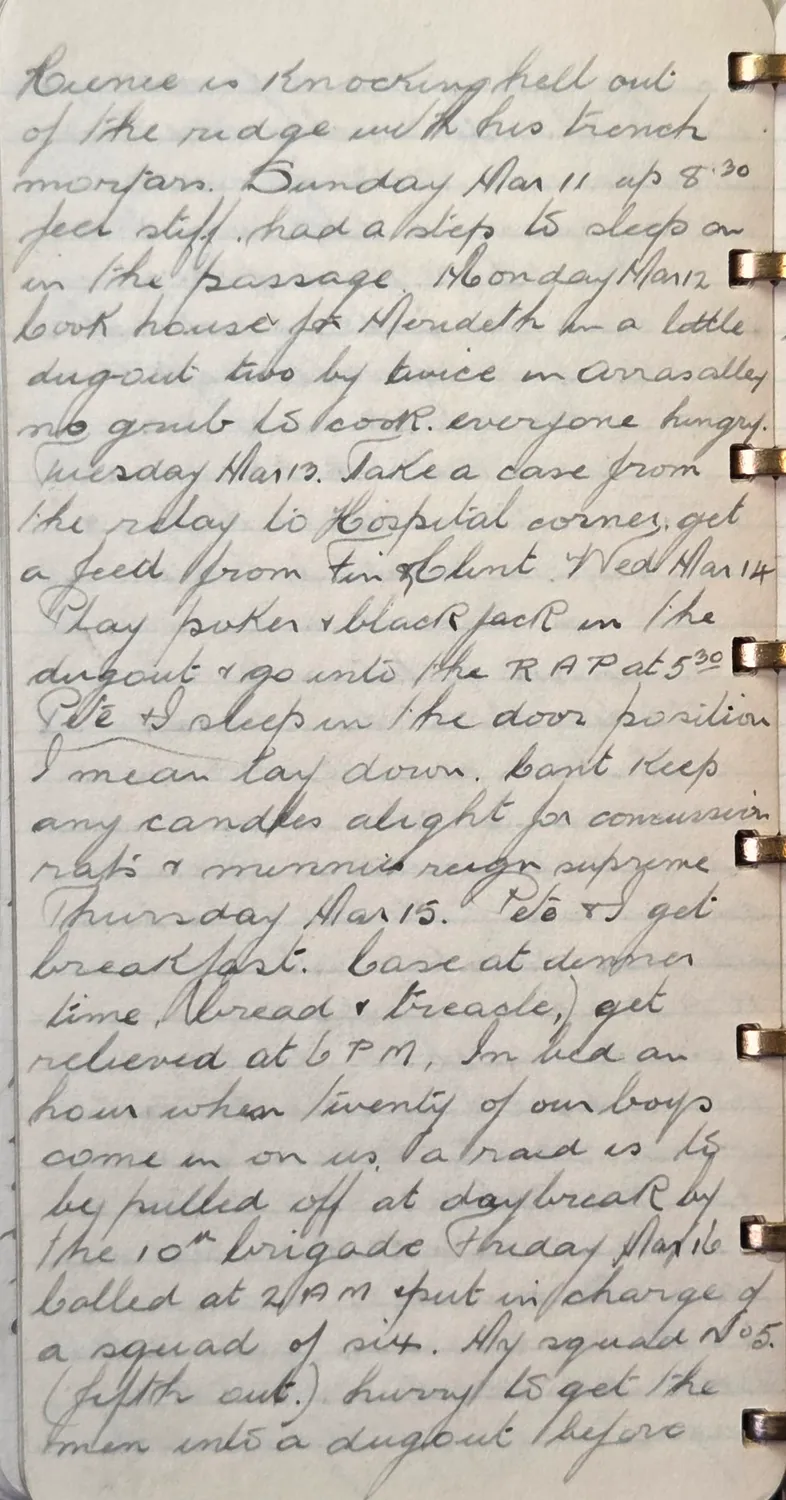 Heinie is Knocking hell out
of the ridge with his trench
mortars. Sunday Mar 11 up 8.30
feel stiff. had a step to sleep on
in the passage. Monday Mar 12
Cook house for Merideth in a little
dug-out two by twice in Arras alley
no grub to cook. everyone hungry.
Tuesday Mar 13. Take a case from
the relay to Hospital corner, get
a feed from Fin & Clint. Wed Mar 14
Play poker & black jack in the
dugout & go into the R A P at 5 30
Pete & I sleep in the door position
I mean lay down. Cant Keep
any candles alight for concussion
rats & minnies reign supreme
Thursday Mar 15. Pete & I get
breakfast. Case at dinner
time, (bread & treacle,) get
relieved at 6 P M, In bed an
hour when twenty of our boys
come in on us, a raid is to
be pulled off at daybreak by
the 10th brigade Friday Mar 16
Called at 2 A M & put in charge of
a squad of six. My squad No 5.
(fifth out.) hurry to get the
men into a dugout before